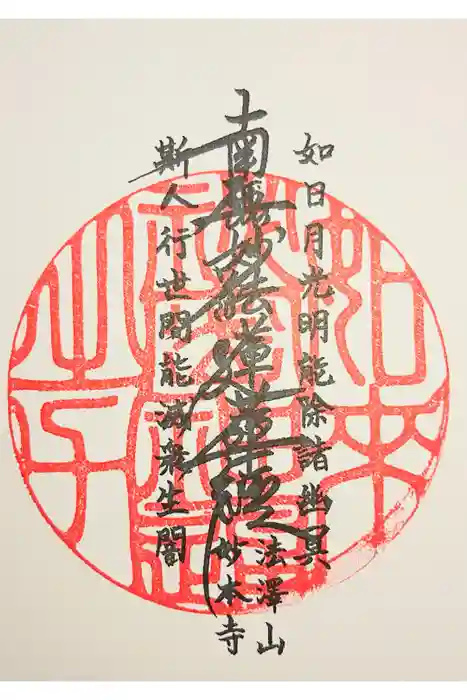 如日月光明能除諸幽冥
南無妙法蓮華経
斯人行世間能滅衆生闇
法澤山
妙本寺